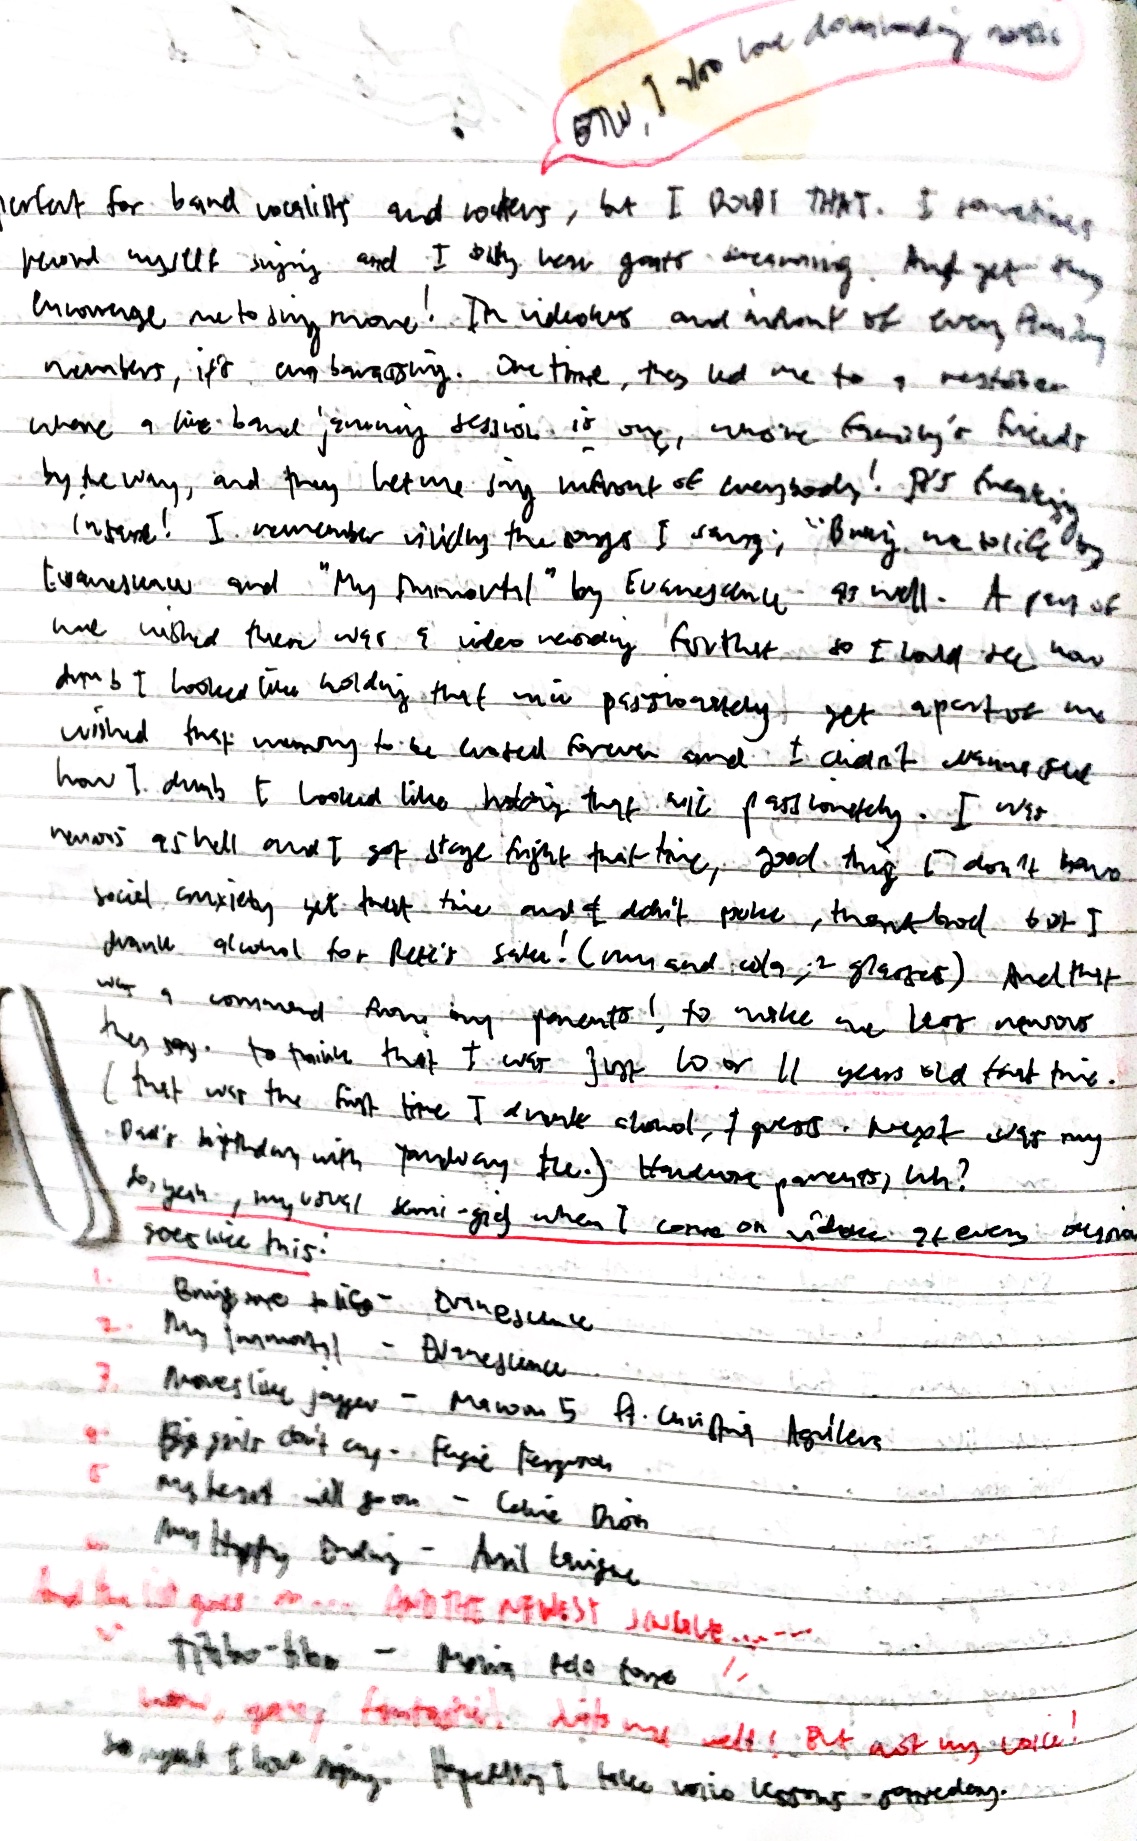 BTW, I also love downloading music
perfect for band vocalists and rockers, but I DOUBT THAT. I sometimes
record myself singing and I only hear goats screaming. And yet they
encourage me to sing more! In videokes and infront of every family
members, it's embarassing. One time, they led me to a restobar
where a live band jamming session is one, whose family's friends
by the way, and they let me sing infront of everybody! It's freaking
insane! I remember vividly the songs I sang; "Bring me to life" by
Evanescence and "My Immortal" by Evanescence as well. A part of
me wished there was a video recording for that so I could see how
dumb I looked like holding that mic passionately, yet a part of me
wished that memory to be erased forever and I didn't wanna see
how I dumb I looked like holding that mic passionately. I was
nervous as hell and I got stage fright that time, good thing I don't have
social anxiety yet that time and I didn't puke, thank God but I
drank alcohol for Pete's sake! (rum and cola; 2 glasses) And that
was a command from my parents! to make me less nervous
they say. to think that I was just 10 or 11 years old that time.
(that was the first time I drank alcohol, I guess. Next was my
Dad's birthday with Tanduay Ice.) Hardcore parents, huh?
So, yeah, my usual semi-gig when I come on videoke at every occasion
goes like this:
1. Bring me to life - Evanescence
2. My Immortal - Evanescence
3. Moves like jagger - Maroon 5 ft. Christina Aguilera
4. Big girls don't cry - Fergie Ferguson
5 My heart will go on - Celine Dion
6. My Happy Ending - Avril Lavigne
And the list goes on.... AND THE NEWEST SINGLE.....---
Tibo-tibo - Moira Dela Torre !!
wow, gay, fantastic! Suits me well! But not my voice!
So yeah I love singing. Hopefully I take voice lessons someday.